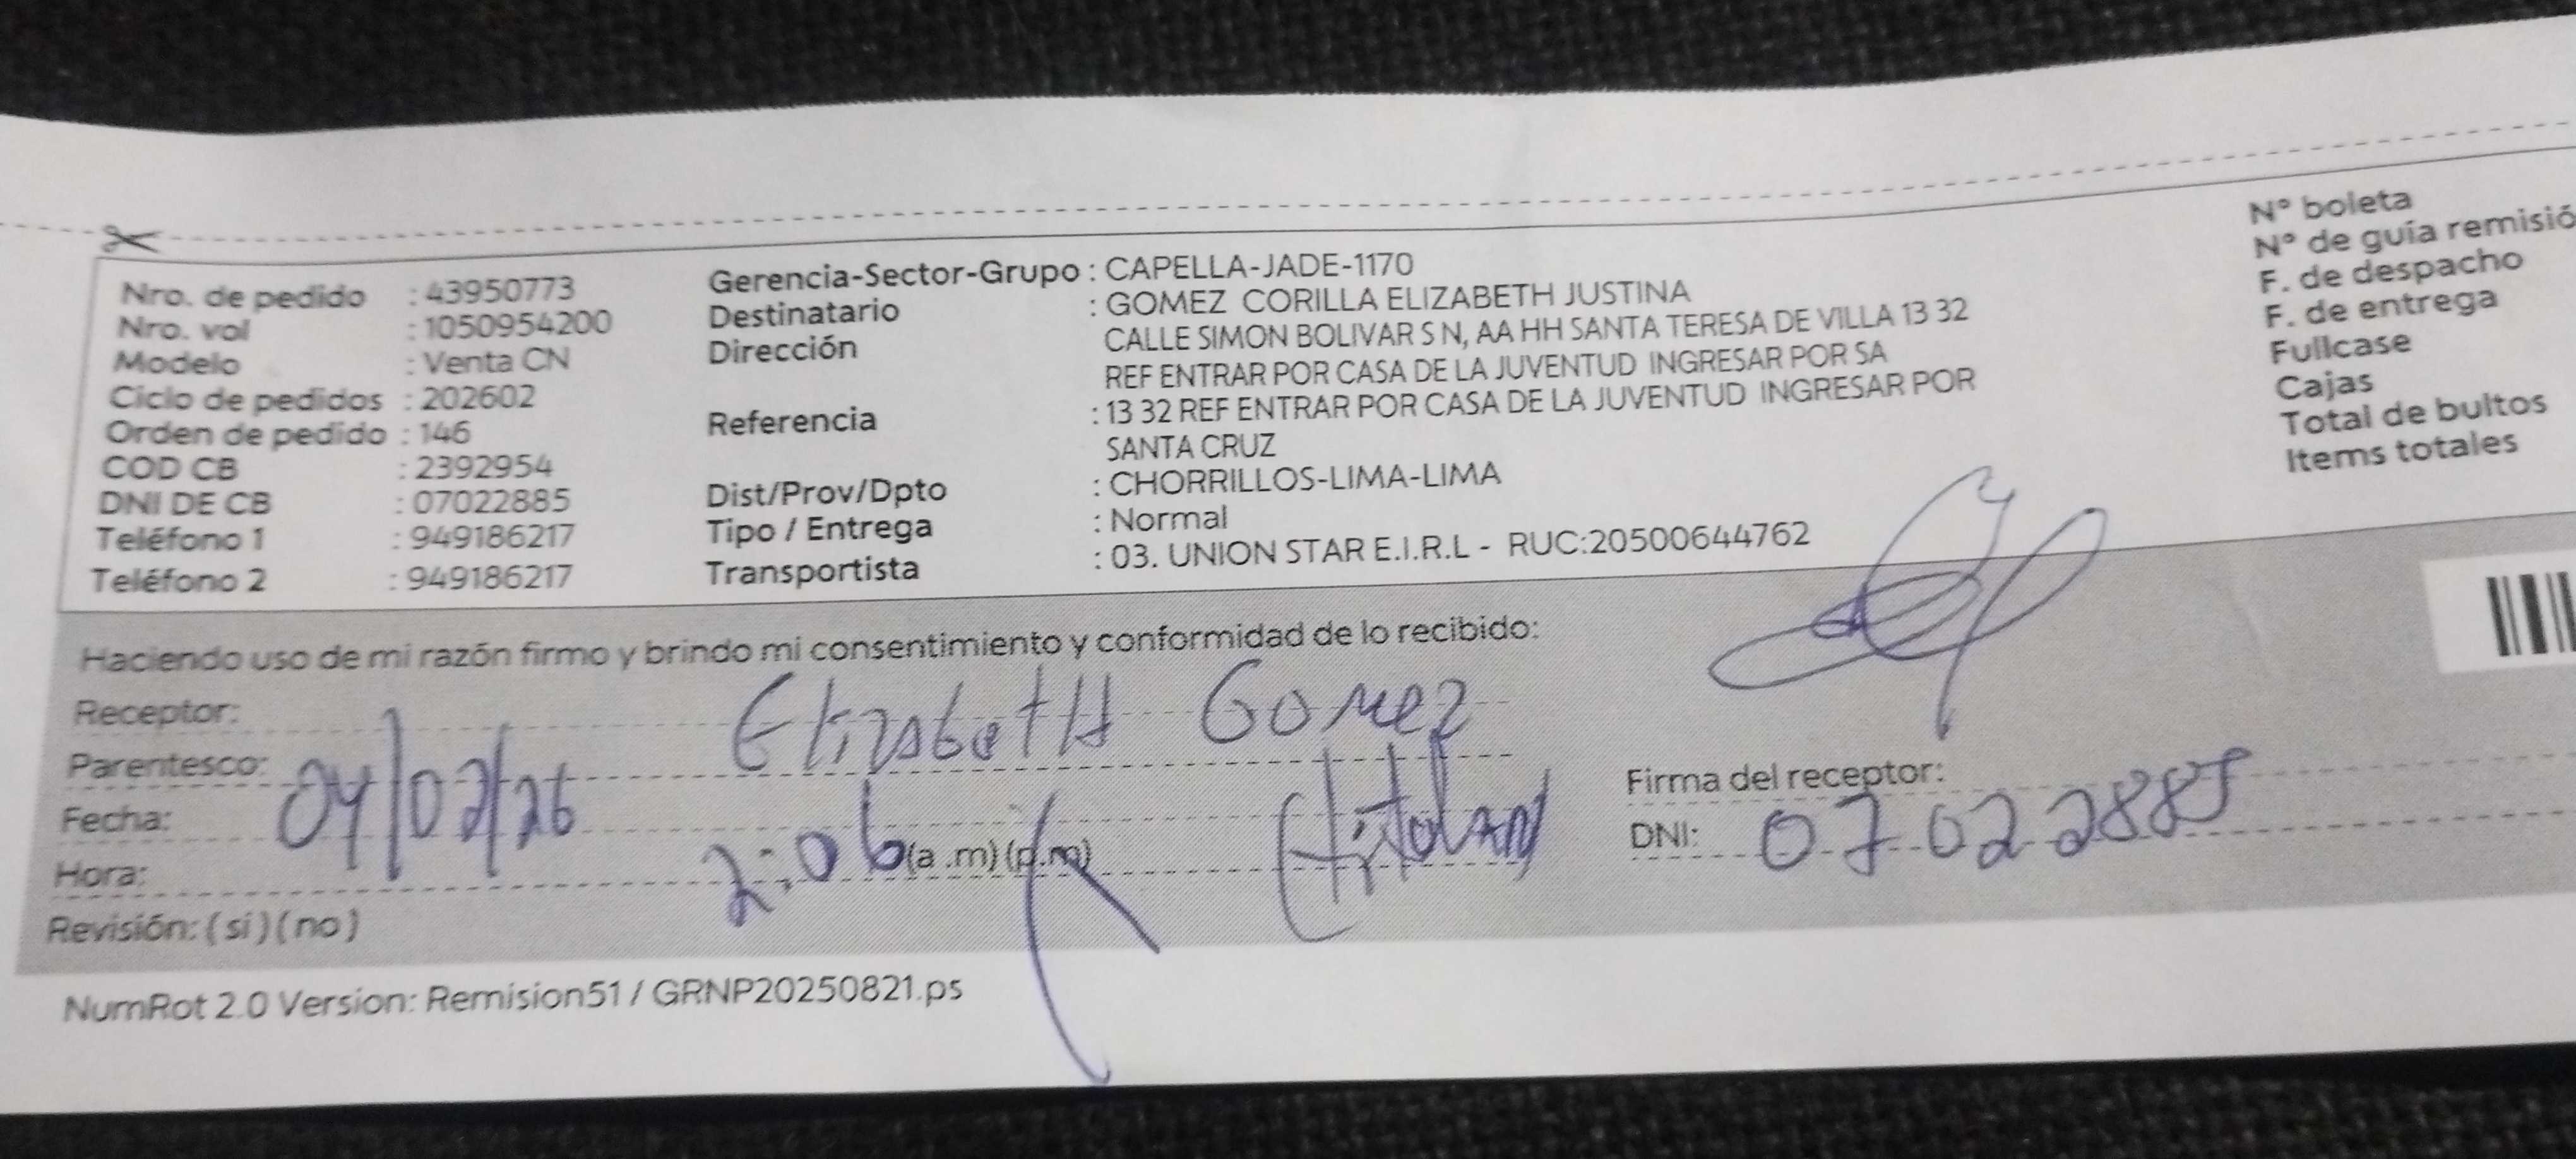 Nro. de pedido : 43950773
Nro. vol : 1050954200
Modelo : Venta CN
Ciclo de pedidos : 202602
Orden de pedido : 146
COD CB : 2392954
DNI DE CB : 07022885
Teléfono 1 : 949186217
Teléfono 2 : 949186217
Gerencia-Sector-Grupo : CAPELLA-JADE-1170
Destinatario : GOMEZ CORILLA ELIZABETH JUSTINA
Dirección CALLE SIMON BOLIVAR S N, AA HH SANTA TERESA DE VILLA 13 32
REF ENTRAR POR CASA DE LA JUVENTUD INGRESAR POR SA
Referencia : 13 32 REF ENTRAR POR CASA DE LA JUVENTUD INGRESAR POR
SANTA CRUZ
Dist/Prov/Dpto : CHORRILLOS-LIMA-LIMA
Tipo / Entrega : Normal
Transportista : 03. UNION STAR E.I.R.L - RUC:20500644762
N° boleta
N° de guía remisió
F. de despacho
F. de entrega
Fullcase
Cajas
Total de bultos
Items totales
Haciendo uso de mi razón firmo y brindo mi consentimiento y conformidad de lo recibido:
Receptor: Elizabeth Gomez
Parentesco: (titular)
Fecha: 04/02/26
Hora: 2:06 (a .m) (p.m)
Revisión: ( si ) ( no )
Firma del receptor:
DNI: 07022885
NumRot 2.0 Version: Remision51 / GRNP20250821.ps